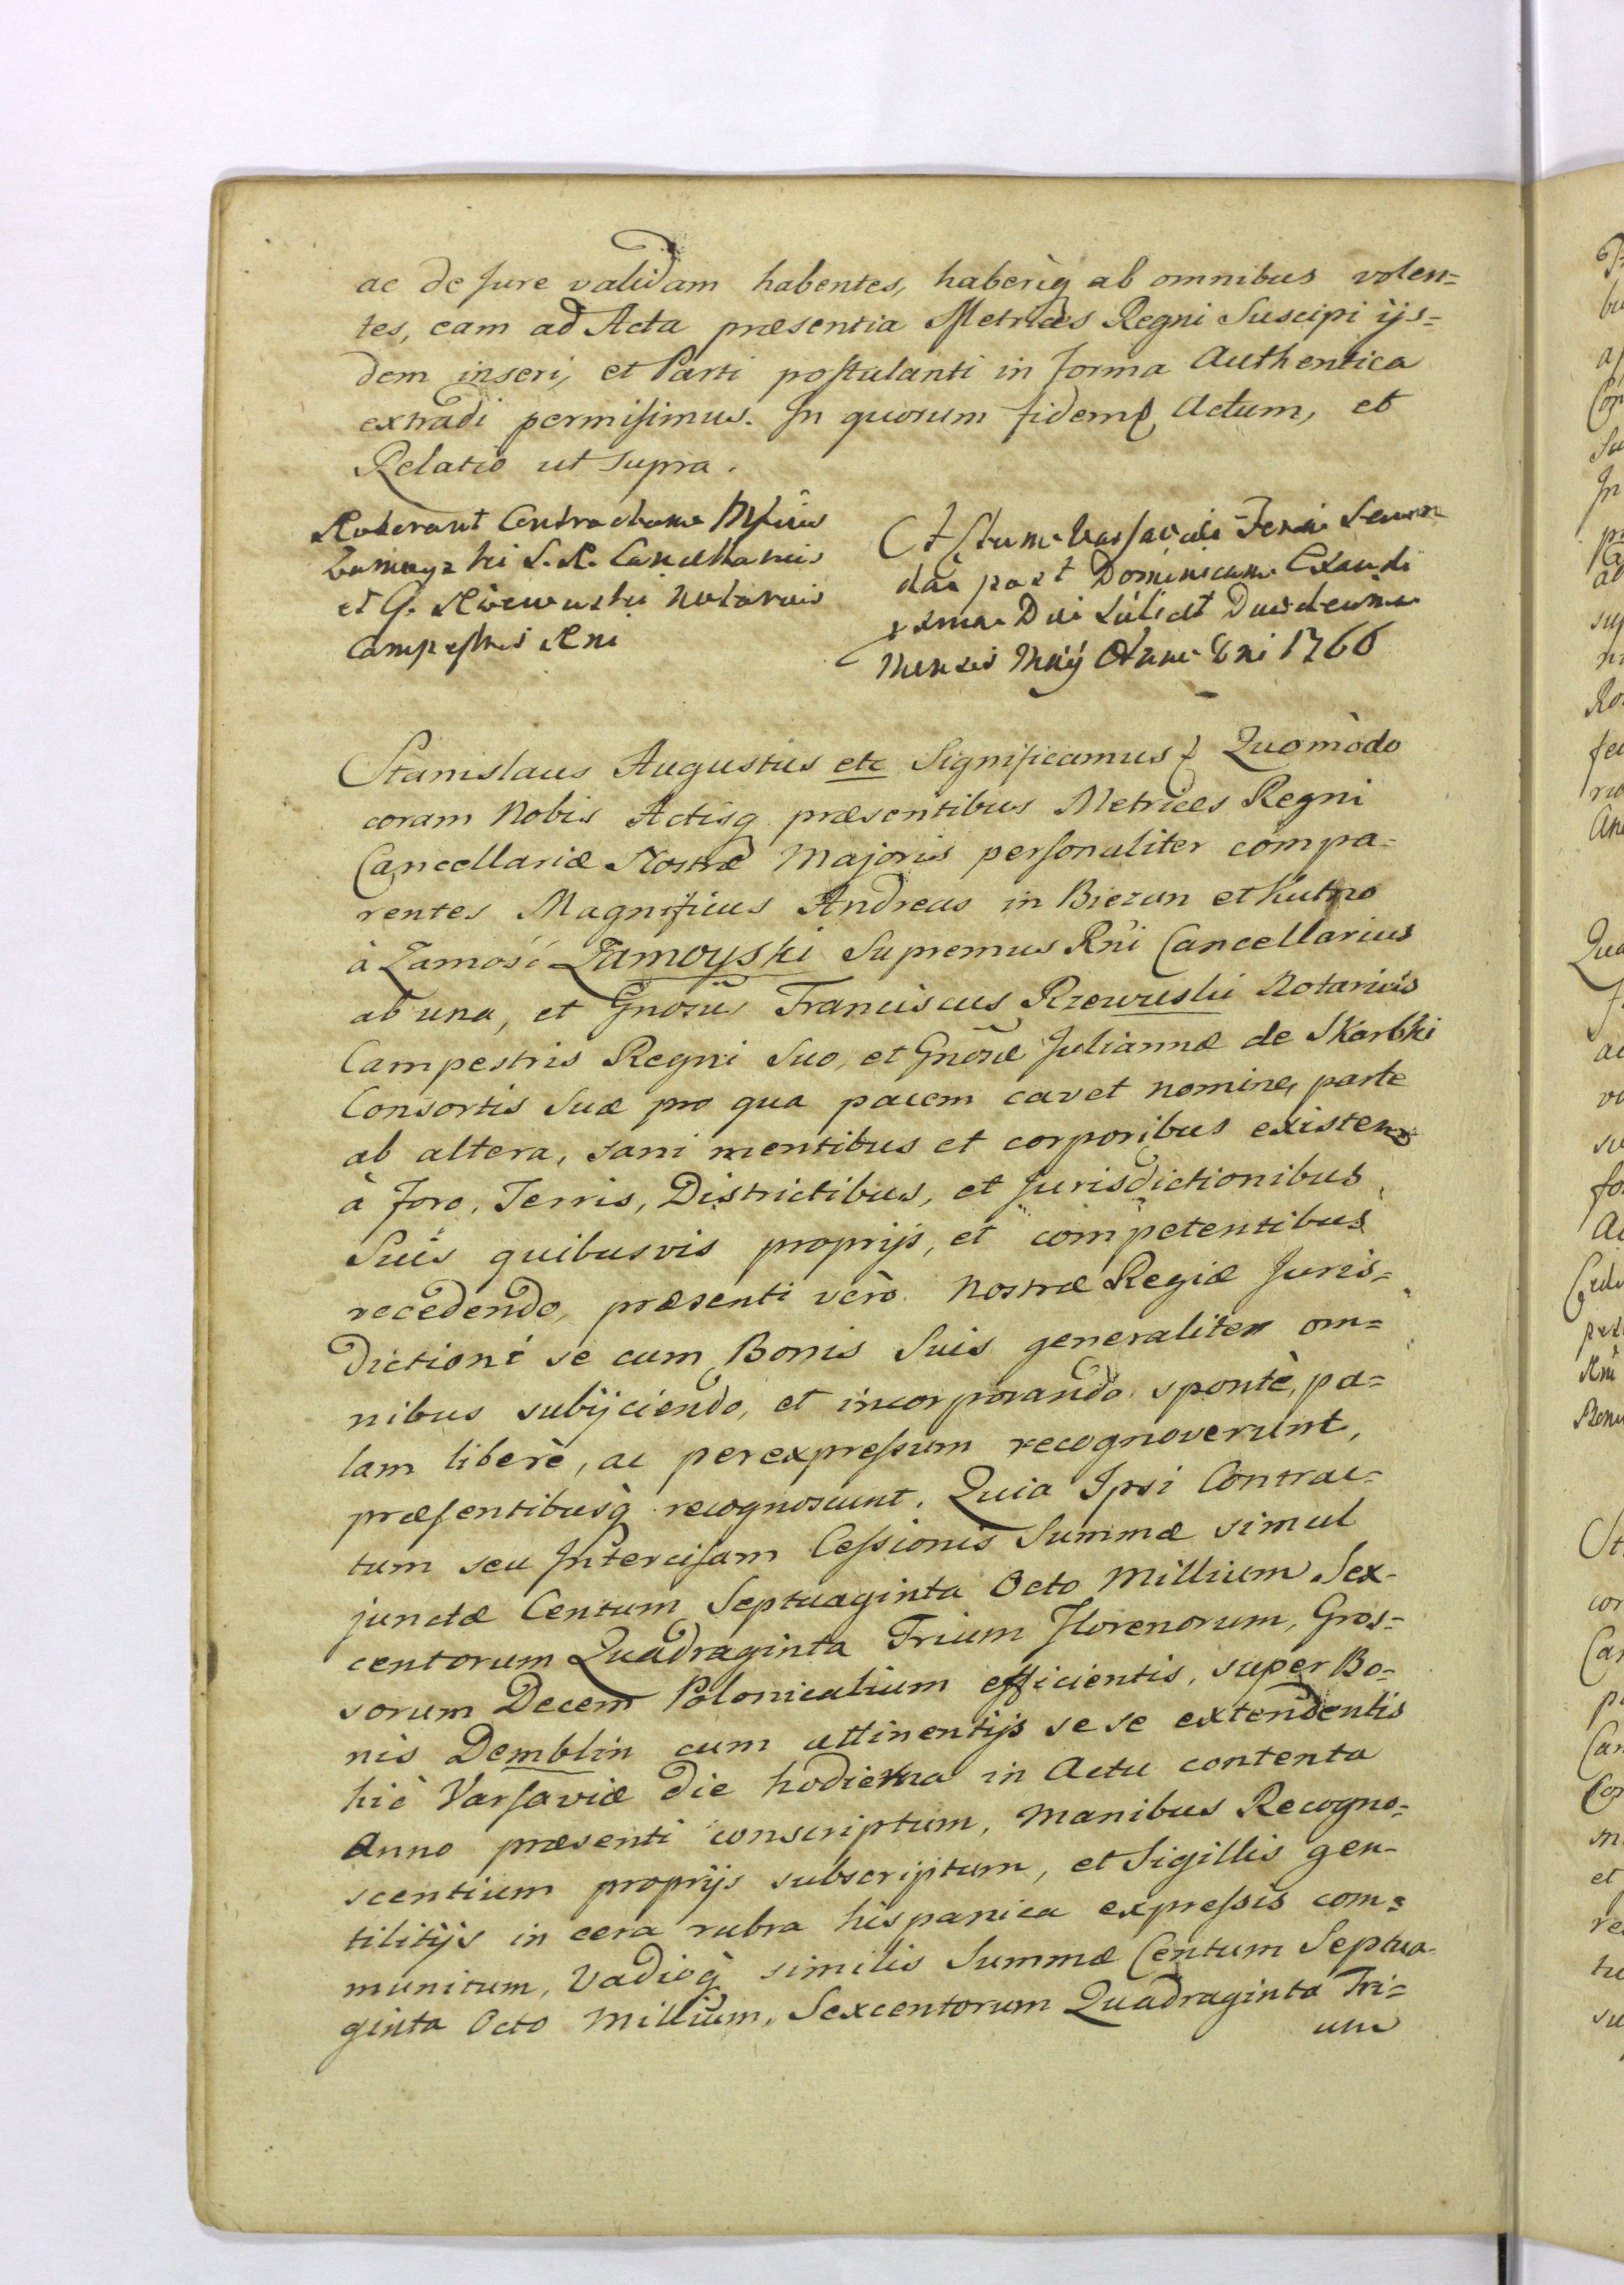 ac de Jure validam habentes, haberiq ab omnibus volen=
tes, eam ad Acta præsentia Metrices Regni Suscipi ijs=
dem inseri, et Parti postulanti in forma Authentica
extradi permisimus. In quorum fidem Actum, et
Relatio ut supra.
Roborant Contractum Mficus
Zamoyski S. R. Cancellarius
et G. Rzewuski Notarius
Campestris Rni
Actum Varsaviæ Feria Secun
da post Dominicam Exaudi
Dni Duodecima
Mensis Maij Anno Dni 1766
Stanislaus Augustus etc Significamus Quomòdo
coram Nobis Actisq præsentibus Metrices Regni
Cancellariæ Nostræ Majoris personaliter compa=
rentes Magnificus Andreas in Biezun et Kutno
à Zamość Zamoyski Supremus Rni Cancellarius
ab una, et Gnosus Franciscus Rzewuski Notarius
Campestris Regni Suo, et Gnosæ Juliannæ de Skarbki
Consortis Suæ pro qua pacem cavet nomine, parte
ab altera, sani mentibus et corporibus existen
à foro, Terris, Districtibus, et Jurisdictionibus
Suis quibusvis proprijs, et competentibus
recedendo, præsenti verò Nostræ Regiæ Juris=
dictioni se cum Bonis Suis generaliter om=
nibus subijciendo, et incorporando spontè, pa=
lam liberè, ac per expressum recognoverunt,
præsentibusq recognoscunt. Quia Ipsi Contrac=
tum seu Intercisam Cessionis Summæ simul
junctæ Centum Septuaginta Octo Millium Sex-
centorum Quadraginta Trium Florenorum, Gros=
sorum Decem Polonicalium efficientis, super Bo=
nis Demblin cum attinentijs sese extendentis
hic Varsaviæ die hodierna in Actu contenta
Anno præsenti conscriptum, Manibus Recogno=
scentium proprijs subscriptum, et Sigillis gen-
tilitijs in cera rubra hispanica expressis com=
munitum, Vadioq similis Summæ Centum Septua-
ginta Octo Millium, Sexcentorum Quadraginta Tri=
um